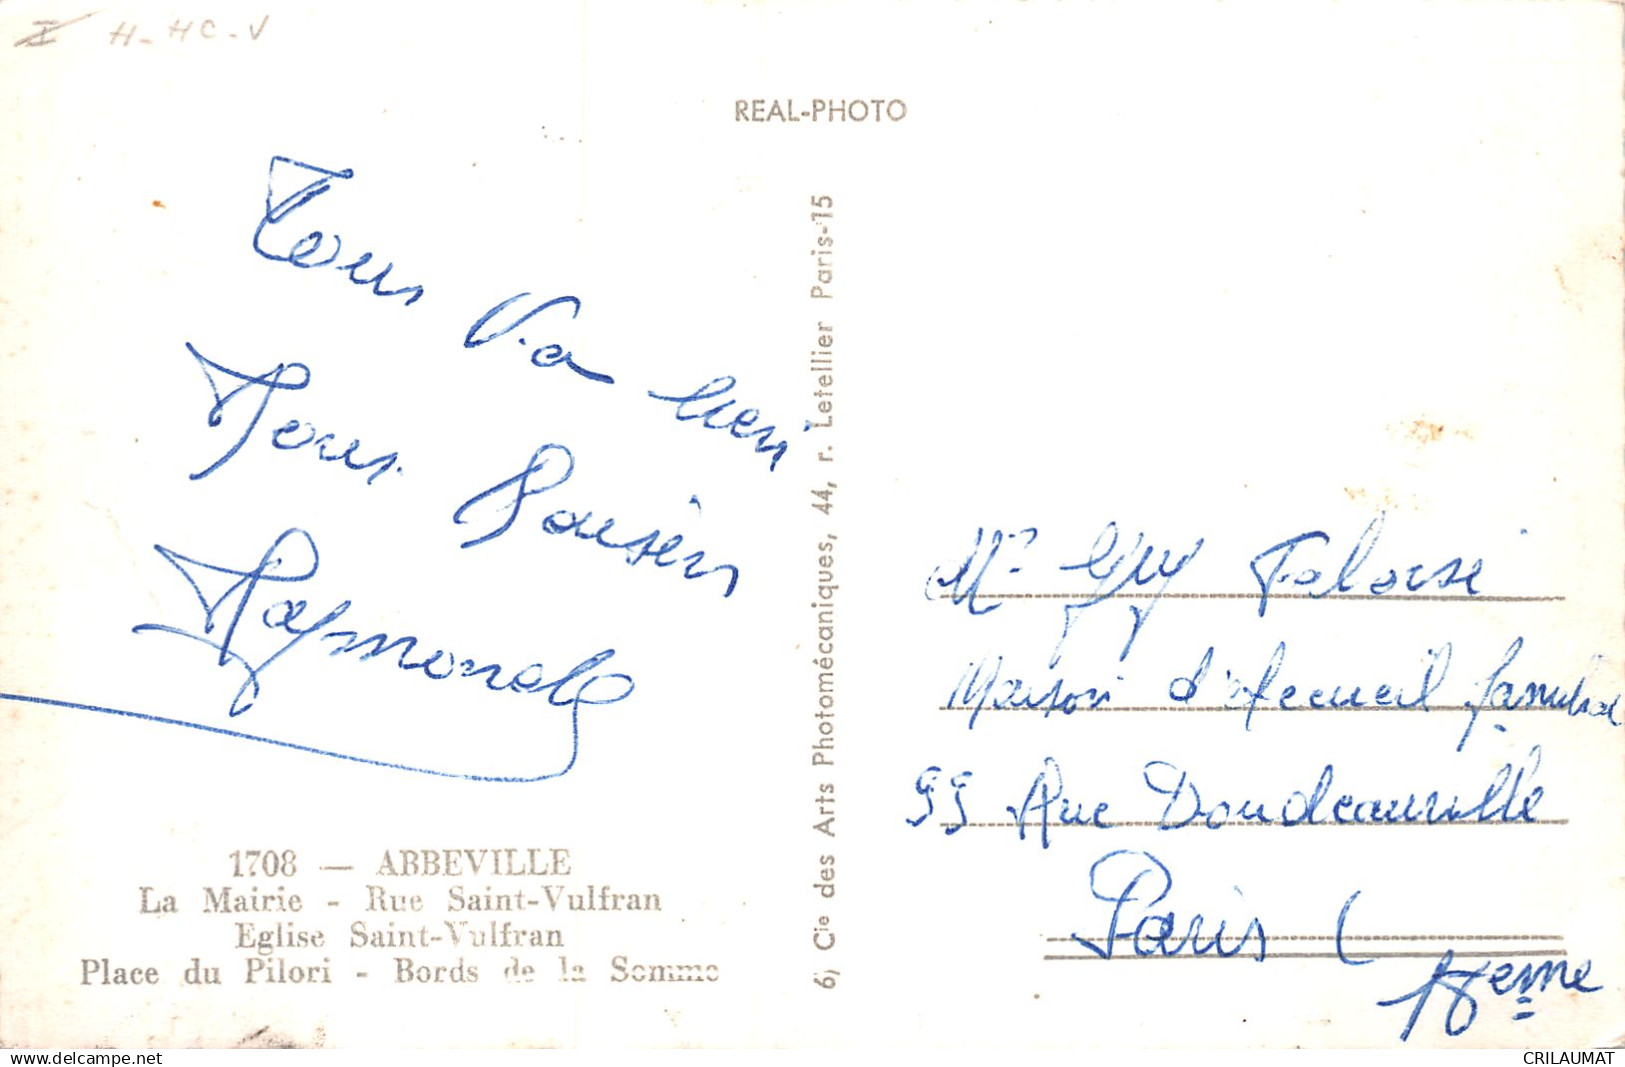 H - HC - V
REAL-PHOTO
Tous Va bien
Tous Baisers
Raymonde
1708 — ABBEVILLE
La Mairie - Rue Saint-Vulfran
Eglise Saint-Vulfran
Place du Pilori - Bords de la Somme
6, Cie des Arts Photomécaniques, 44, r. Letellier Paris-15
Mr Guy
Maison d'Accueil familial
99 Rue Doudeauville
Paris (
18eme
CRILAUMAT
https://www.delcampe.net